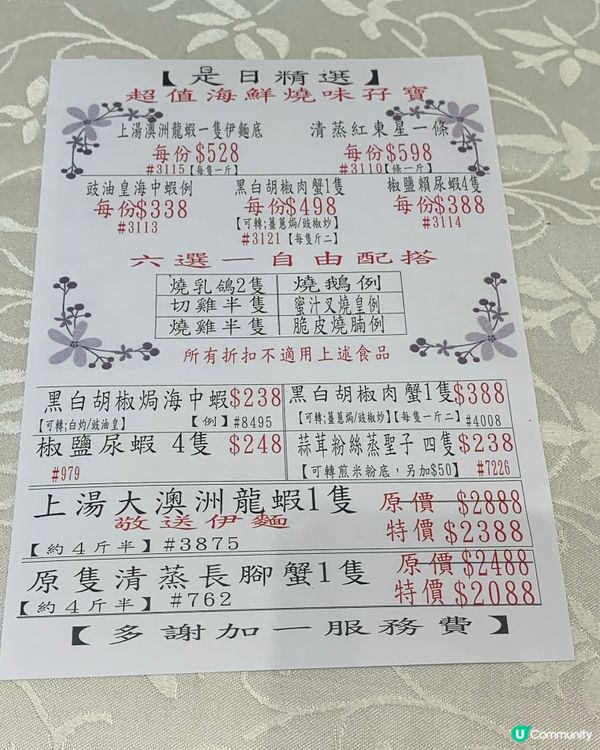 【是日精選】
超值海鮮燒味孖寶
上湯澳洲龍蝦一隻伊麵底 清蒸紅東星一條
每份$528 每份$598
#3115【每隻一斤】 #3110【條一斤】
豉油皇海中蝦例 黑白胡椒肉蟹1隻 椒鹽賴尿蝦4隻
每份$338 每份$498 每份$388
#3113 【可轉;薑蔥焗/豉椒炒】 #3114
#3121【每隻斤二】
六選一自由配搭
燒乳鴿2隻 燒鵝例
切雞半隻 蜜汁叉燒皇例
燒雞半隻 脆皮燒腩例
所有折扣不適用上述食品
黑白胡椒焗海中蝦$238 黑白胡椒肉蟹1隻$388
【可轉;白灼/豉油皇】 【例】#8495 【可轉;薑蔥焗/豉椒炒】【每隻一斤二】 #4008
椒鹽尿蝦 4隻 $248 蒜茸粉絲蒸聖子 四隻$238
#979 【可轉煎米粉底，另加$50】 #7226
上湯大澳洲龍蝦1隻 原價 $2888
敬送伊麵 特價$2388
【約4斤半】#3875
原隻清蒸長腳蟹1隻 原價$2488
【約4斤半】 #762 特價$2088
【多謝加一服務費】
U Community